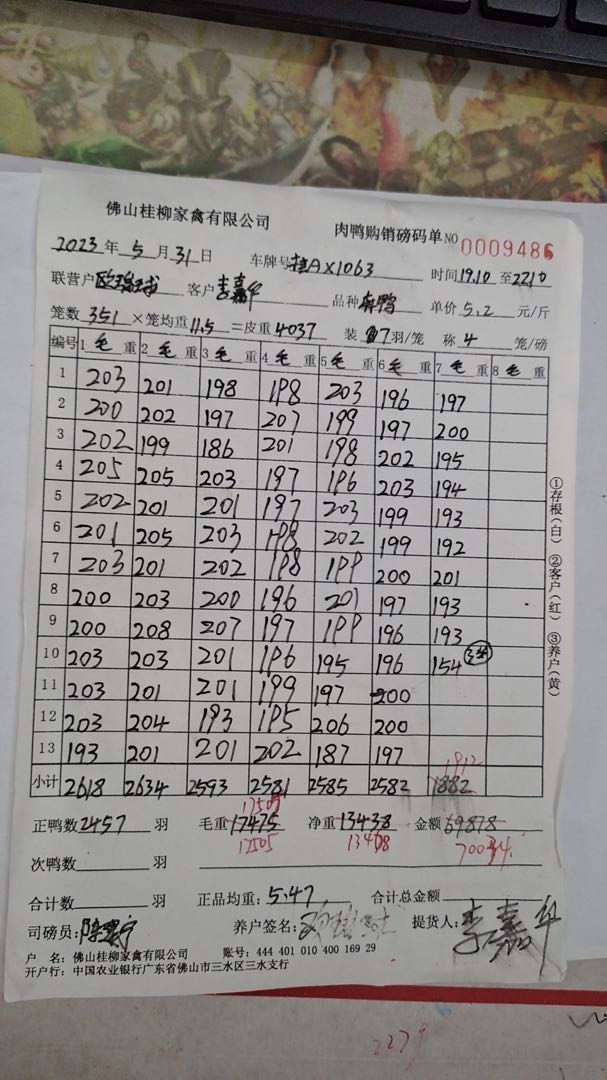 佛山桂柳家禽有限公司 肉鸭购销磅码单 NO 0009486
2023年 5月 31日 车牌号 桂AX1063 时间 19.10 至 2210
联营户 客户 李嘉华 品种 奔鸭 单价 5.2 元/斤
笼数 351 ×笼均重 11.5 =皮重 4037 装 7羽/笼 称 4 笼/磅
编号 1毛重 2毛重 3毛重 4毛重 5毛重 6毛重 7毛重 8毛重
1 203 201 198 198 203 196 197
2 200 202 197 207 199 197 200
3 202 199 186 201 198 202 195
4 205 205 203 197 196 203 194
5 202 201 201 197 203 199 193
6 201 205 203 198 202 199 192
7 203 201 202 198 199 200 201
8 200 203 200 196 201 197 193
9 200 208 207 197 199 196 193
10 203 203 201 196 195 196 154
11 203 201 201 199 197 200
12 203 204 193 195 206 200
13 193 201 201 202 187 197
1912
小计 2618 2634 2593 2581 2585 2582 1882
17505
正鸭数 2457 羽 毛重 17475 净重 13438 金额 69878
17505 13468
次鸭数 羽
合计数 羽 正品均重: 5.47 合计总金额
司磅员: 养户签名: 提货人: 李嘉华
户 名: 佛山桂柳家禽有限公司 账号: 444 401 010 400 169 29
开户行: 中国农业银行广东省佛山市三水区三水支行
①存根(白) ②客户(红) ③养户(黄)